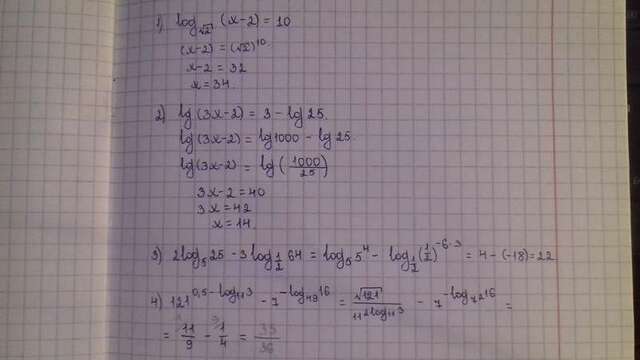 1) log_√2 (x-2) = 10
(x-2) = (√2)^10
x-2 = 32
x = 34
2) lg(3x-2) = 3 - lg25
lg(3x-2) = lg1000 - lg25
lg(3x-2) = lg(1000/25)
3x-2 = 40
3x = 42
x = 14
3) 2log_5 25 - 3log_1/2 64 = log_5 5^4 - log_1/2 (1/2)^-6·3 = 4-(-18) = 22
4) 121^0,5-log_11 3 - 7^-log_49 16 = √121/11^2log_11 3 - 7^-log_7^2 16 =
= 11/9 - 1/4 = 35/36